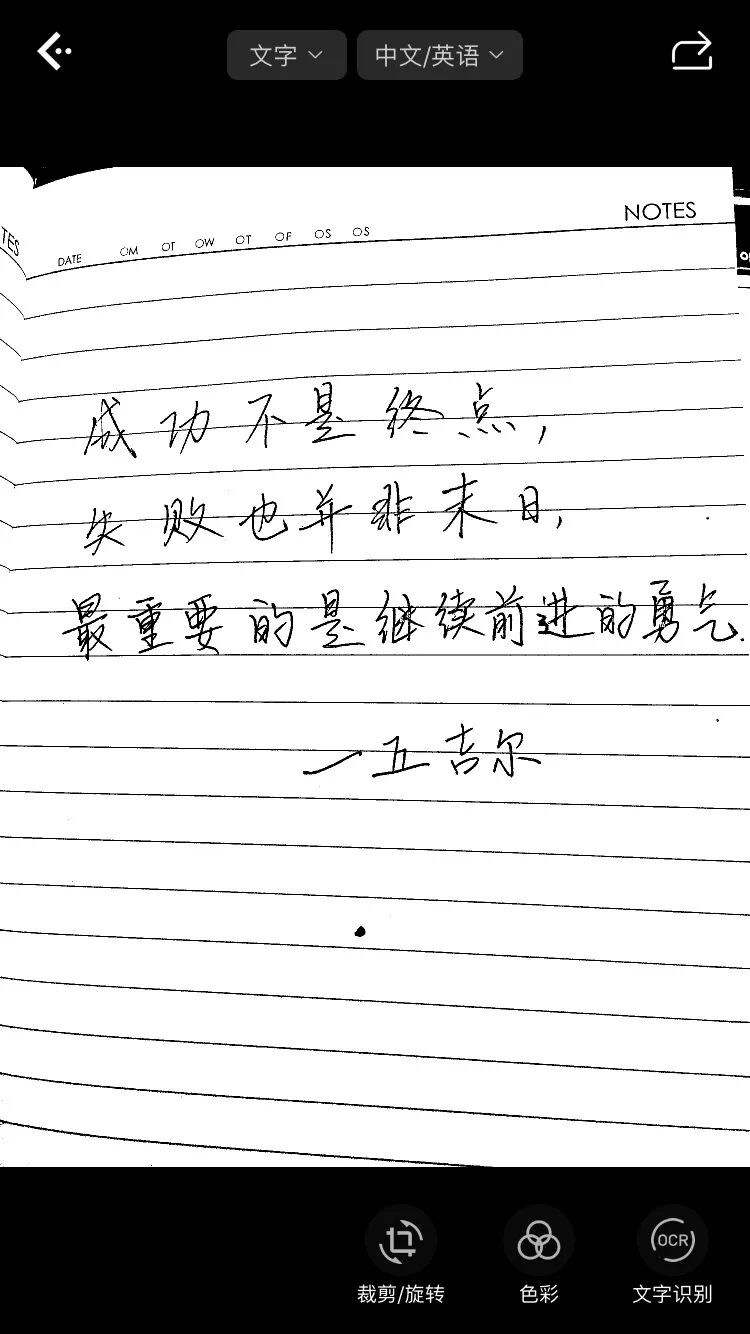 文字 中文/英语
NOTES
TES
DATE OM OT OW OT OF OS OS
成功不是终点,
失败也并非末日,
最重要的是继续前进的勇气.
一五吉尔
裁剪/旋转 色彩 OCR 文字识别